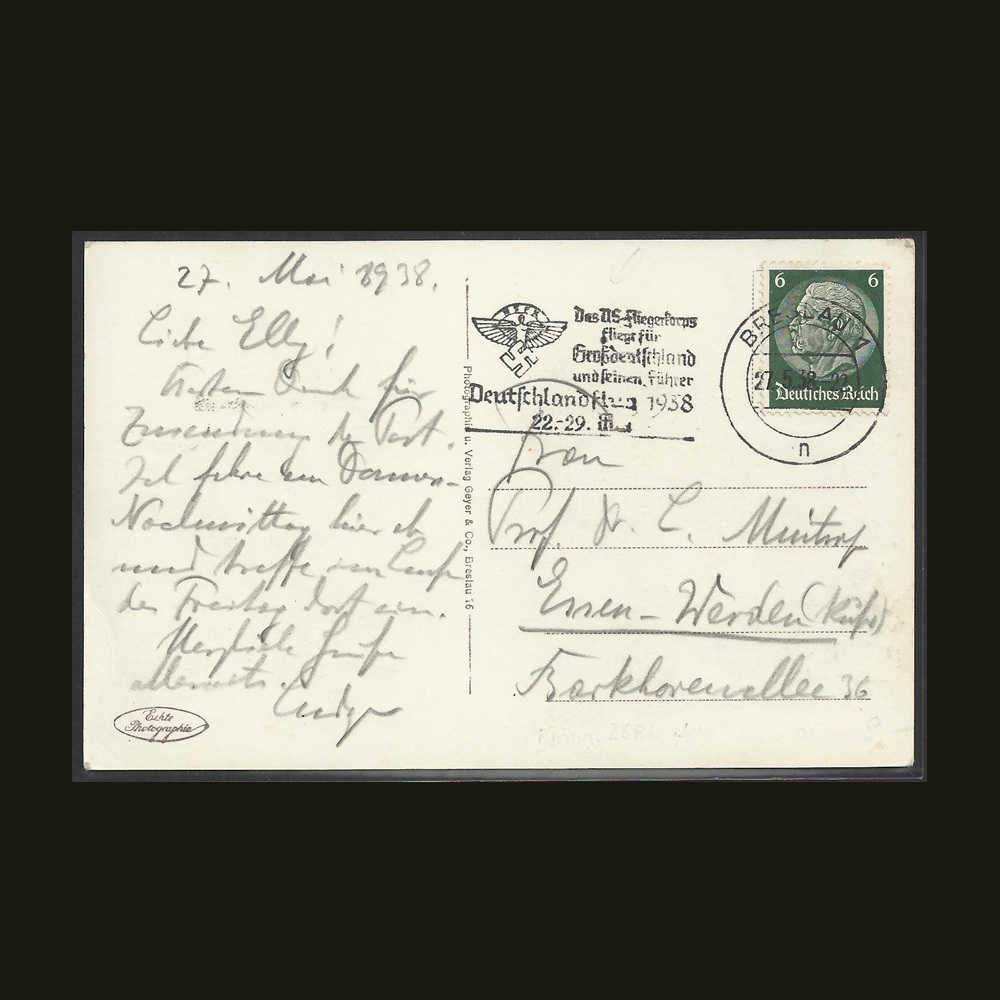 27. Mai 1938.
Liebe Elly!
Dank für
Zusendung der Post.
Ich fahre
Nachmittag hier ab
und treffe im Laufe
des Freitag dort ein.
Herzliche Grüße
allerseits.
Echte
Photographie
Photographie u. Verlag Geyer & Co., Breslau 16
NSFK
Das NS-Fliegerkorps
fliegt für
Großdeutschland
und seinen Führer
Deutschlandflug 1938
22.-29. Mai
6 6
Deutsches Reich
BRESLAU 1
27.5.38
n
Frau
Prof. Dr. L. Mintrop
Essen-Werden (Ruhr)
Barkhovenallee 36